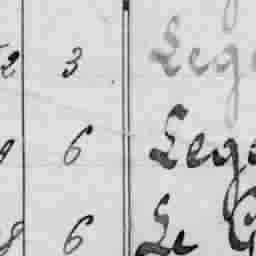 2 3 Lege
9 6 Lege
8 6 Le G